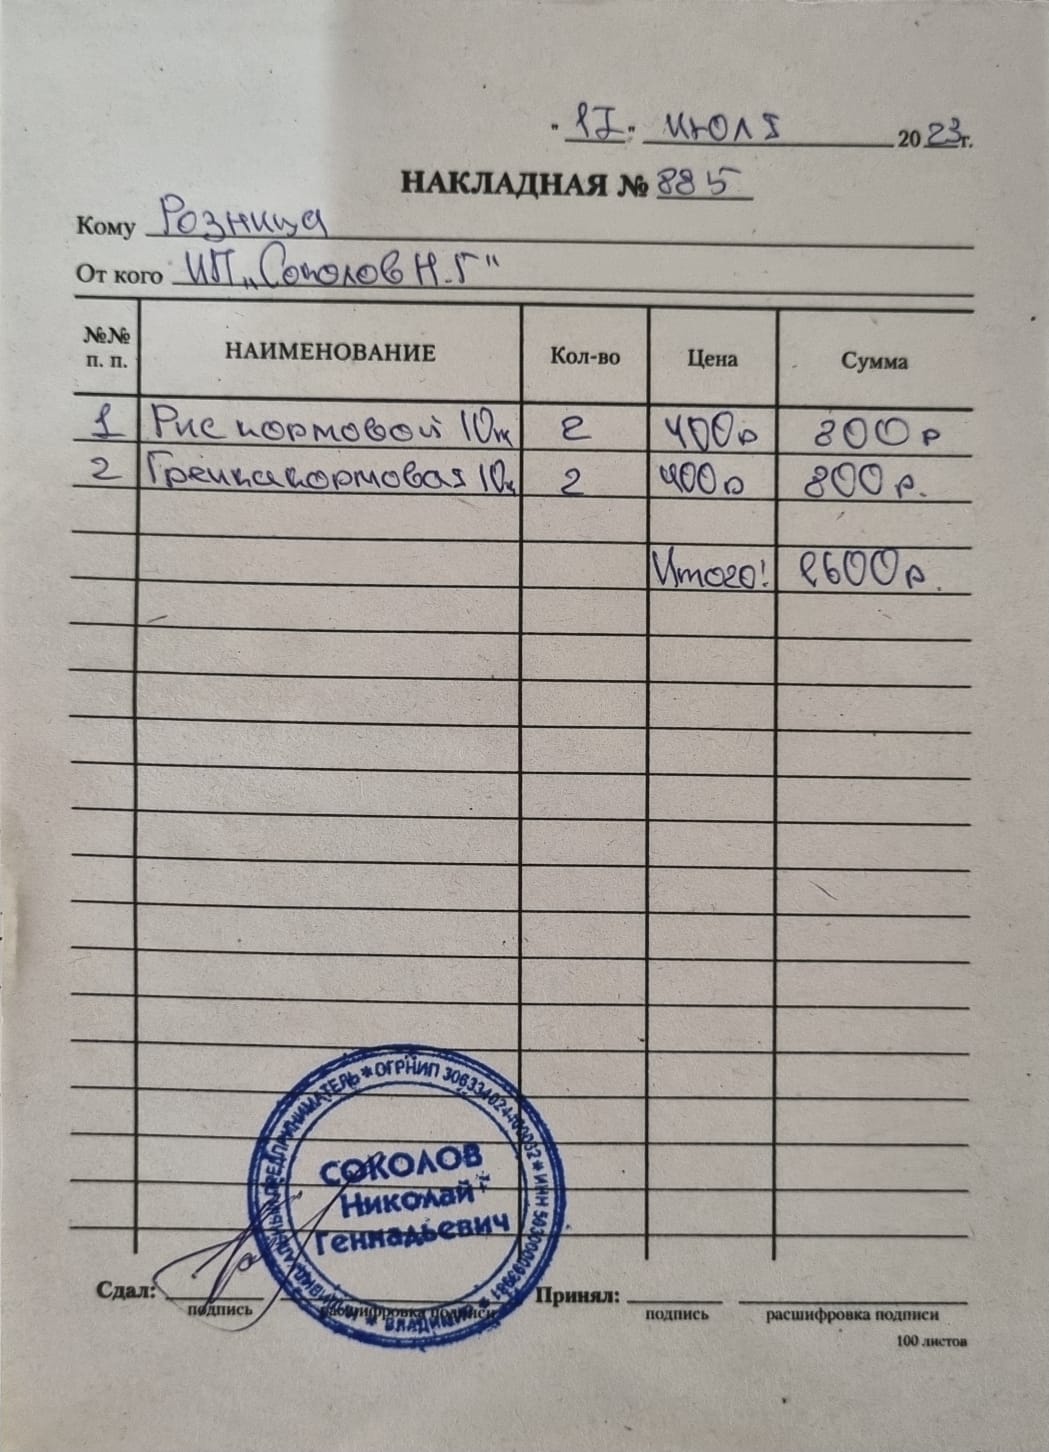 "17" июля 2023 г.
НАКЛАДНАЯ № 885
Кому Розница
От кого ИП „Соколов Н.Г"
№№ п. п. НАИМЕНОВАНИЕ Кол-во Цена Сумма
1 Рис кормовой 10к 2 400р 800р
2 Гречка кормовая 10к 2 400р 800р.
Итого! 1600р.
ИНДИВИДУАЛЬНЫЙ ПРЕДПРИНИМАТЕЛЬ * ОГРНИП * ИНН * ВЛАДИМИР *
СОКОЛОВ
Николай
Геннадьевич
Сдал: Принял:
подпись расшифровка подписи подпись расшифровка подписи
100 листов